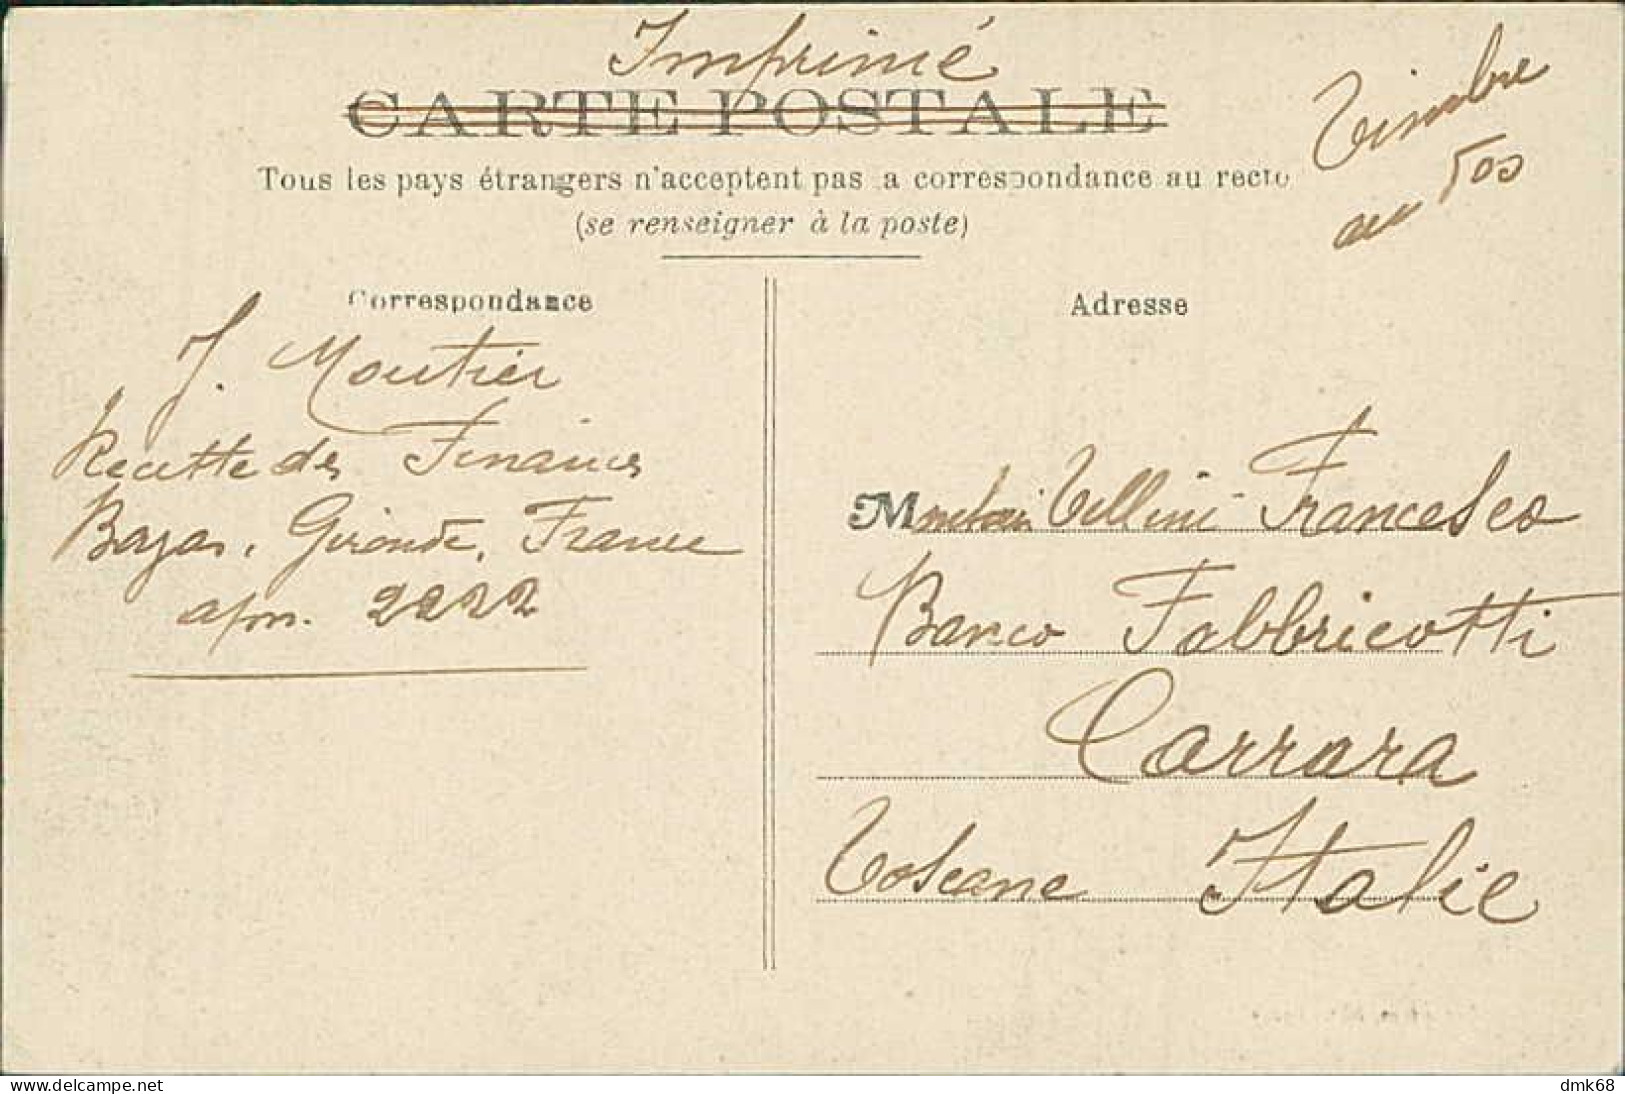 Imprimé
CARTE POSTALE
Timbre
au 500
Tous les pays étrangers n'acceptent pas la correspondance au recto
(se renseigner à la poste)
Correspondance
Adresse
J. Moutier
Recette des Finances
Bazas, Gironde, France
2222
M Tellini Francesco
Banco Fabbricotti
Carrara
Toscane Italie
www.delcampe.net
dmk68